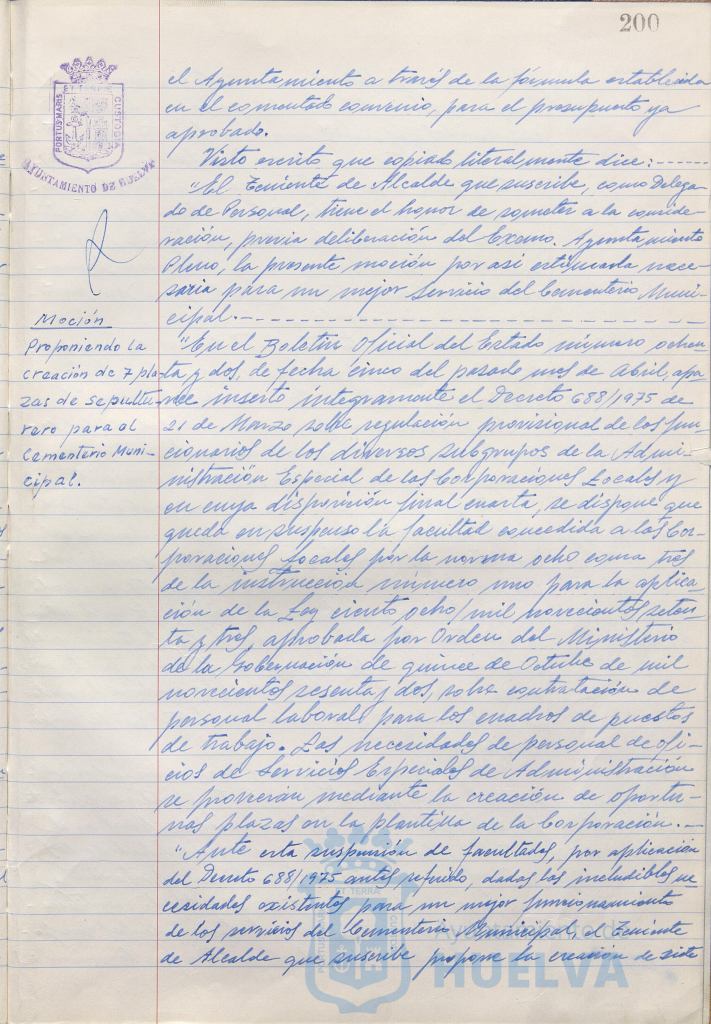 200
PORTUS MARIS
ET TERRE
CUSTODIA
AYUNTAMIENTO DE HUELVA
el Ayuntamiento a través de la fórmula establecida
en el comentado convenio, para el presupuesto ya
aprobado.
Visto escrito que copiado literalmente dice:------
"El Teniente de Alcalde que suscribe, como Delega-
do de Personal, tiene el honor de someter a la conside-
ración, previa deliberación del Excmo. Ayuntamiento
Pleno, la presente moción por así estimarla nece-
saria para un mejor Servicio del Cementerio Muni-
cipal.------
Moción
Proponiendo la
creación de 7 pla-
zas de sepultu-
rero para el
Cementerio Muni-
cipal.
"En el Boletín Oficial del Estado número ochen-
ta y dos, de fecha cinco del pasado mes de Abril, apa-
rece inserto íntegramente el Decreto 688/1975 de
21 de Marzo sobre regulación provisional de los fun-
cionarios de los diversos subgrupos de la Admi-
nistración Especial de las Corporaciones Locales y
en cuya disposición final cuarta, se dispone que
queda en suspenso la facultad concedida a las Cor-
poraciones Locales por la norma ocho coma tres
de la instrucción número uno para la aplica-
ción de la Ley ciento ocho/mil novecientos seten-
ta y tres, aprobada por Orden del Ministerio
de la Gobernación de quince de Octubre de mil
novecientos sesenta y dos, sobre contratación de
personal laboral para los cuadros de puestos
de trabajo. Las necesidades de personal de ofi-
cios de Servicios Especiales de Administración
se proveerán mediante la creación de oportu-
nas plazas en la plantilla de la Corporación.--
"Ante esta suspensión de facultades, por aplicación
del Decreto 688/1975 antes referido, dadas las ineludibles ne-
cesidades existentes para un mejor funcionamiento
de los servicios del Cementerio Municipal, el Teniente
de Alcalde que suscribe propone la creación de siete
HUELVA